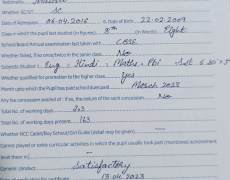 Whether SC/ST SC
Date of Admission 06.04.2016 & Date of Birth 22.02.2009
Class in which the pupil last studied (in figures) 8th In Words Eight
School/Board Annual examination last taken with CBSE
Whether failed, if so once/twice in the same class No
Subject Studied Eng Hindi Maths
Whether qualified for promotion to the higher class Yes
Month upto which the Pupil has paid School dues March 2023
Any fee concession availed of: if so, the nature of the such concession No
Total No. of working days 203
Total No. of working days present 163
Whether NCC Cadet/Boy Scout/Girl Guide (detail may be given)
Games played or some curricular activities in which the pupil usually took part (mentioned achievement
level there in)
General conduct Satisfactory
13.04.2023